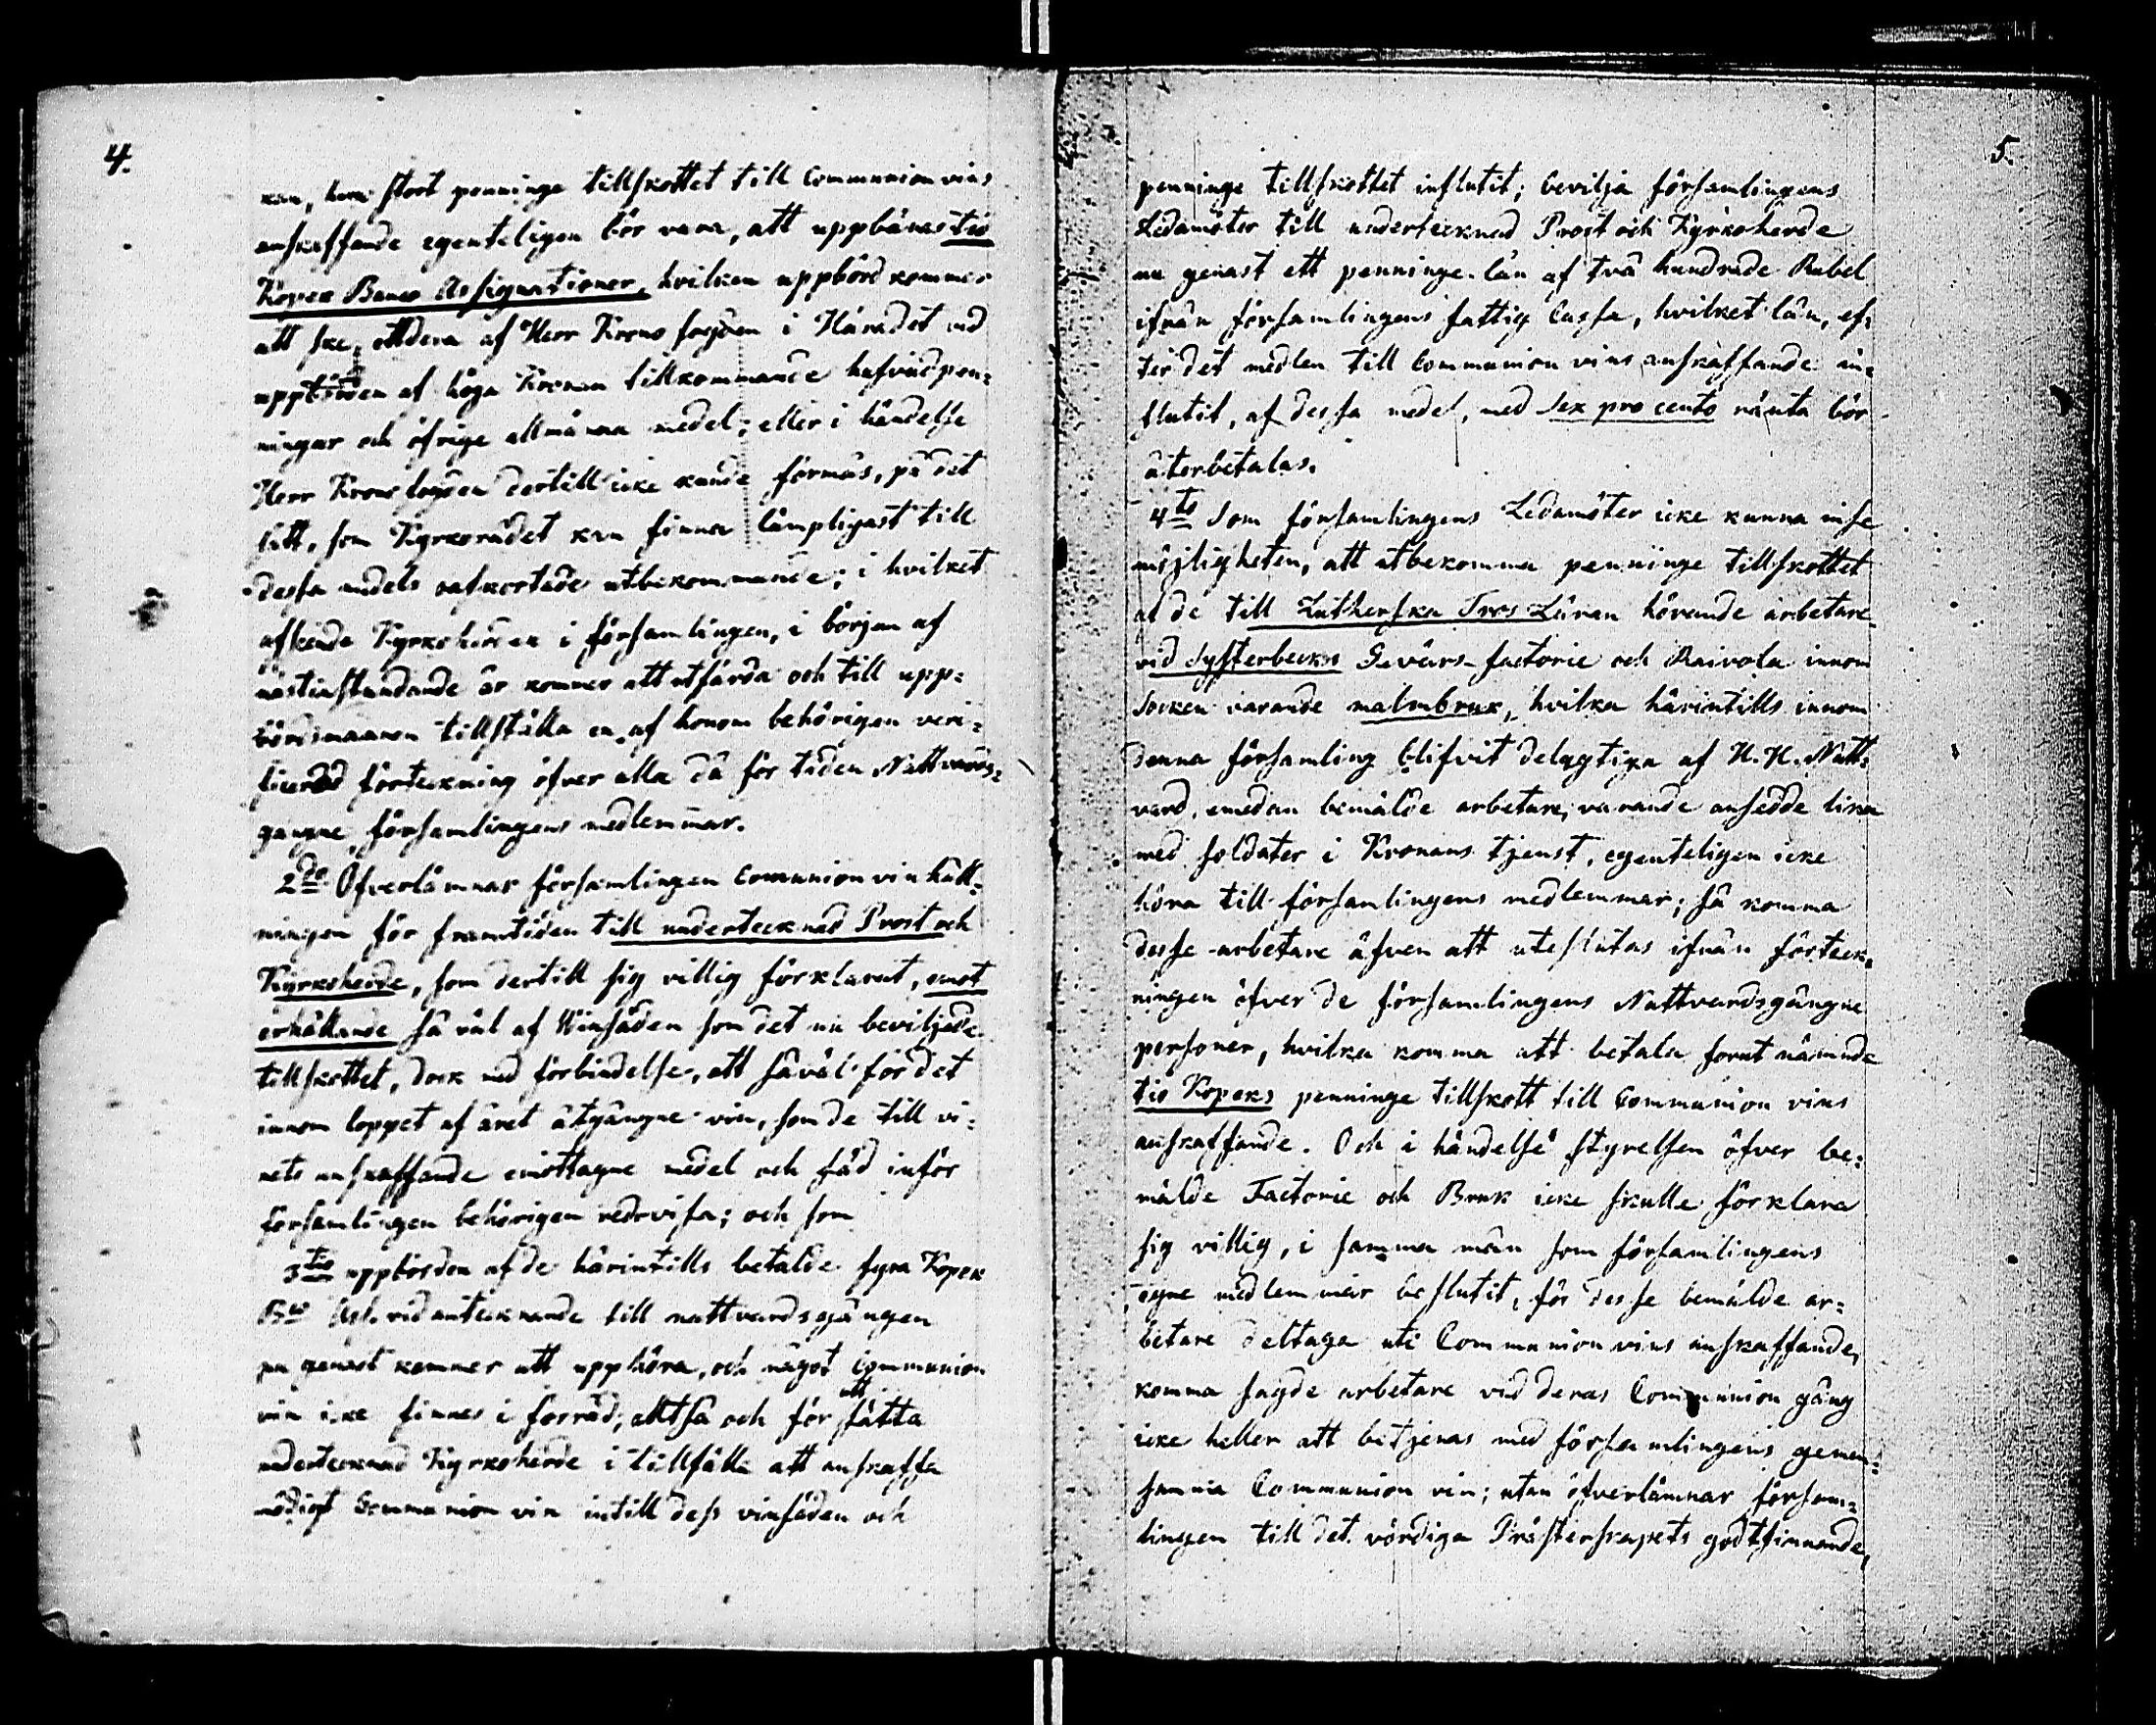 4.
kan, huru stort penninge tillskottet till Communion vins
anskaffande egenteligen bör vara, att uppbäras tio
Kopek Banco Assignationer, hvilken uppbörd kommer
att ske, af Herr Krono fogden i Häradet vid
uppbörden af höga Kronan tillkommande hufvudpen=
ningar och öfrige allmänna medel; eller i händelse
Herr Kronofogden dertill icke kunde förmås, på det
sätt, som Kyrkorådet kan finna lämpligast till
dessa medels oafkortade utbekommande; i hvilket
afseende Kyrkoherden i församlingen, i början af
nästinstundande år kommer att utfärda och till upp=
bördsmannen tillställa en, af honom behörigen veri=
ficerad förteckning öfver alla då för tiden Nattvards=
gangne församlingens medlemmar.
2do Öfverlämnar församlingen Comunion vin håll=
ningen för framtiden till undertecknad Prost och
Kyrkoherde, som dertill sig villig förklarat, emot
erhållande så väl af Winsäden som det nu beviljade
tillskottet, dock med förbindelse, att såväl för det
innom loppet af året åtgångne vin, som de till vi=
nets anskaffande emottagne medel och säd inför
församlingen behörigen redovisa; och som
3tio uppbörden af de härintills betalde fyra Kopek
Bco Ass. vid antecknande till nattvardsgången
nu genast kommer att upphöra, och något Communion
vin icke finnes i förråd; alltså och för att sätta
undertecknad Kyrkoherde i tillfälle att anskaffa
nödigt Communion vin intill dess vinsäden och
5.
penninge tillskottet influtit; bevilja församlingens
Ledamöter till undertecknad Prost och Kyrkoherde
nu genast ett penninge-lån af två hundrade Rubel
ifrån församlingens fattig Cassa, hvilket lån, ef=
ter det medlen till Communion vins anskaffande in=
flutit, af dessa medel, med sex pro cento ränta bör
återbetalas.
4to Som församlingens Ledamöter icke kunna inse
möjligheten, att utbekomma penninge tillskottet
af de till Lutherska Tros Läran hörande arbetare
vid Systerbecks Gevärs-factorie och Raivola innom
Socken varande malmbruk, hvilka härintills innom
denna församling blifvit delagtiga af H. H. Natt=
vard, emedan bemälde arbetare, varande ansedde lika
med soldater i Kronans tjenst, egenteligen icke
höra till församlingens medlemmar; så komma
desse arbetare äfven att uteslutas ifrån förteck=
ningen öfver de församlingens Nattvardsgångne
personer, hvilka komma att betala forut nämnde
tio Kopeks penninge tillskott till Communion vins
anskaffande. Och i händelse styrelsen öfver be=
mälde Factorie och Bruk icke skulle förklara
sig villig, i samma mån som församlingens
egne medlemmar beslutit, för desse bemälde ar=
betare deltaga uti Communion vins anskaffande,
komma sagde arbetare vid deras Communion gång
icke heller att betjenas med församlingens gemen=
samma Communion vin; utan öfverlämnar försam=
lingen till det vördiga Prästerskapets godtfinnande,